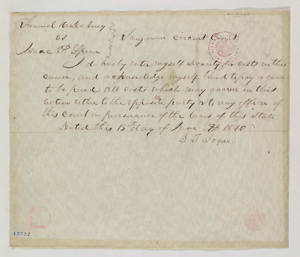 Samuel
vs Sangamon Circuit Court
Isaac P. Spear
I do hereby enter myself security for costs in this
cause, and acknowledge myself bound to pay or cause
to be paid all costs which may accrue in this
action either to the opposite party or to any officer of
this court in pursuance of the laws of this state
Dated this day of June 1840
S. T. Logan